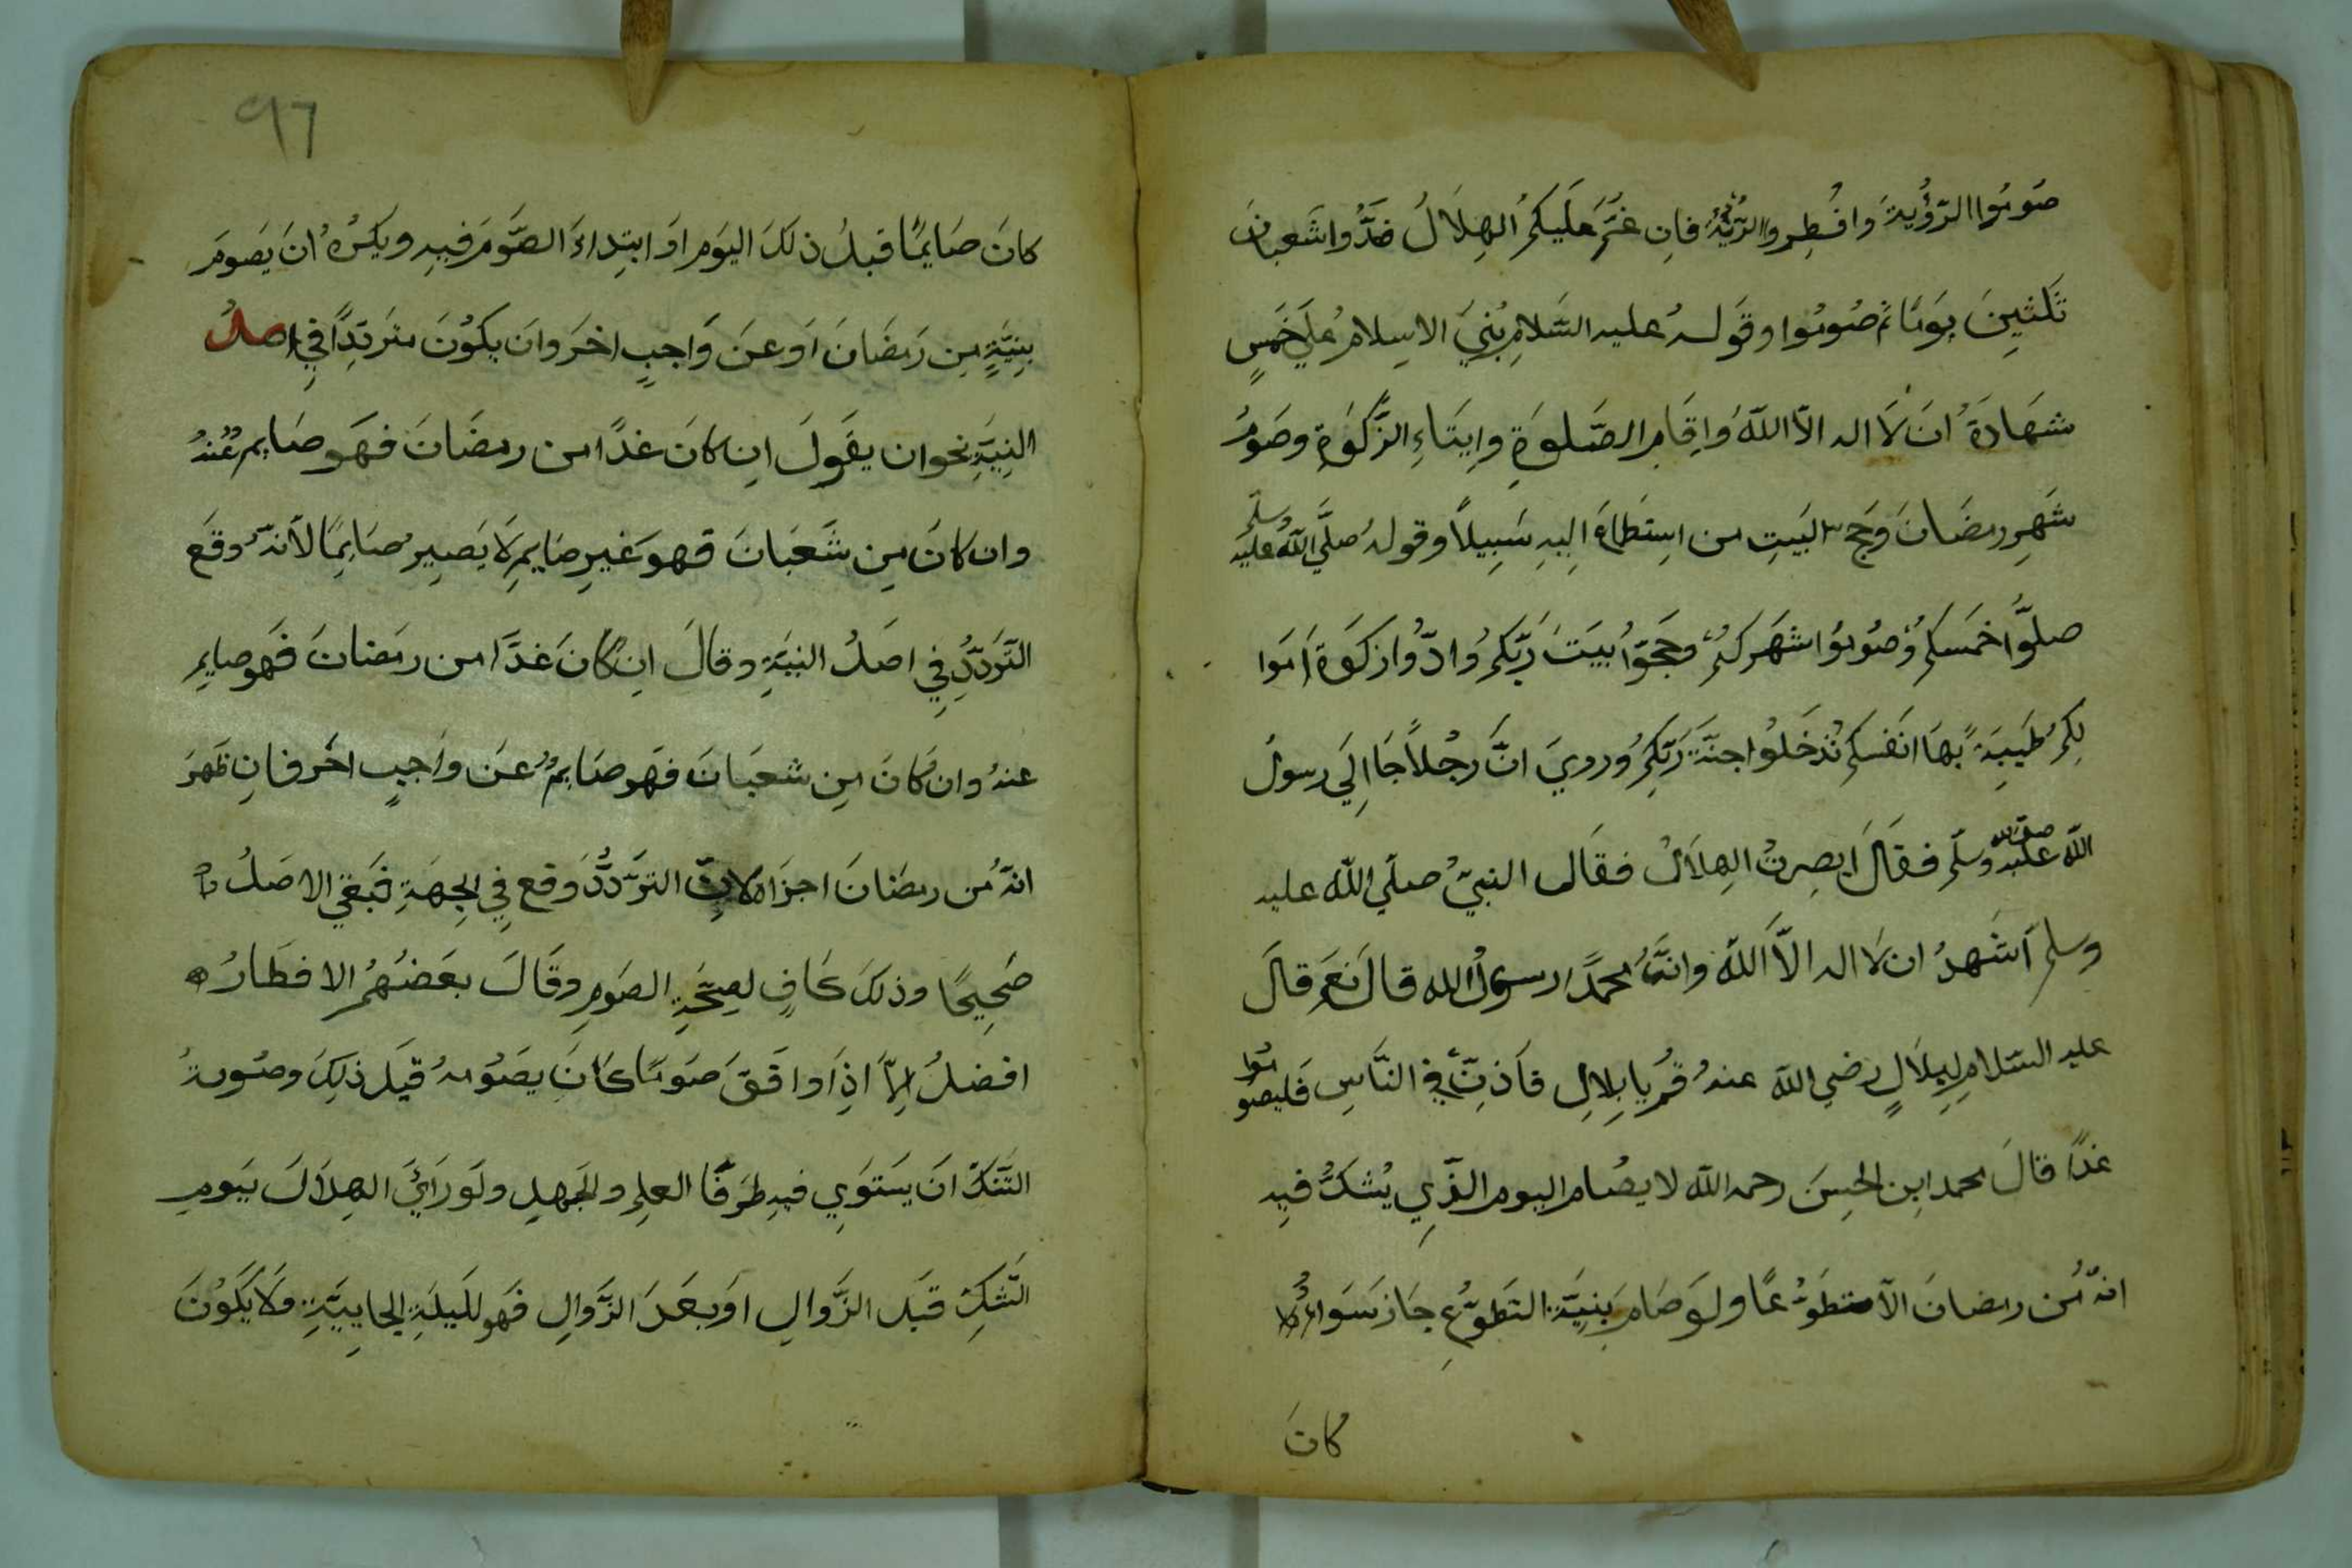 صُومُوا الرّؤيةَ وافطِروا الرّؤيَةِ فانِ غُمَّ عَلَيكُمُ الهِلَالُ فعُدُّوا شَعبانَ
ثَلثينَ يومًا ثم صُومُوا وقوله عليه السَّلامُ بُنيَ الاسِلامُ علَي خَمسٍ
شهَادَةُ انَ لَا اله الّا اللّهُ وَاِقَامِ الصَّلوَةِ وايتَاءِ الزَّكوةِ وصَومُ
شَهرِ رمضَانَ وَحَجّ البَيتِ من استِطَاعَ اِليهِ سَبِيلاً وقولهُ صلَّي اللهُ عليه وسلّم
صلوّا خمَسكم وُصُومُوا شهَركُم وحَجّوُا بيَتَ رَبّكُم وُادّوُا زكَوةَ اَموا
لِكُم طَيبَةً بهَا انَفسكم تُدخَلُوا جنّةَ رَبّكِمُ ورويَ انَّ رجُلاً جَا اِلَي رسولُ
اللّه صلى الله عليه وسلّم فقَالَ ابصِرتُ الهِلَالُ فقَال النبيّ صلَي اللّه عليه
وسلم اَشَهدُ ان لا اله الاَّ اللهُ وانَّ محمدًا رسولُ الله قالَ نَعَم قالَ
عليه السّلامِ لِبِلَالٍ رضي الله عنهُ قُم يا بِلالِ فاَذِنّ في النّاسِ فَليصُومُوا
غدًا قالَ محمد ابن الحسِنَ رحمه الله لا يصُام اليوم الذِّي يُشكُّ فيِه
انهُّ مُن رمضانَ الاّ متطوُعًّا ولوَ صَامَ بَنِيَّة التطَوّعِ جَاز سَوَاءٌ
كانَ
٩٦
كانَ صَايمًا قبلُ ذلكَ اليوَم اوَ ابتِداءَ الصَّومَ فيهِ ويكَرهُ انَ يَصومَ
بنِيَّةٍ مِن رَمضَانَ اوَ عنَ وَاجبٍ اخرَ وان يكوُنَ متَردِّدًا فِي اصلُ
النِيَّةِ نحو ان يقَولَ انِ كانَ غدًا من رمضَانَ فهَو صَايم عَنهُ
وان كانَ مِن شَعَبَانَ فهوَ غيرِ صَايمِ لَا يَصِيرُ صَايِمًا لاَنهُّ وقَع
التَّرَددِّ فِي اصَلُ النيَةِ وقالَ انِ كانَ غَدًا من رمَضانَ فهَو صايمِ
عنهُ وان كانَ مِن شعبَانَ فهَو صَايمٌ عنَ واجبٍ اخرَ فانِ ظَهرَ
انهّ مُن رمضَانَ اجزاه لانّ الترَددَّ وقع فِي الجِهَةِ فبَقي الاصَلُ
صَحِيحًا وذلكَ كَافٍ لصِحَّةِ الصَومِ وقَالَ بعَضهُمُ الافطَارُ
افضلُ اِلاّ اذِاَ وافَقَ صَومًا كانَ يصَوُمهُ قبَل ذلِكَ وصُورةُ
الشَّكّ انَ يَستَوي فيهِ طرَفَا العلِمِ والجَهلِ ولَو رَايَ الهِلَالَ بَيومِ
الشّكِ قبَل الزَّوالِ اوَ بعَدَ الزَّوالِ فهَو للَيلَةِ الجَاييَّةِ ولَا يكَوُنَ